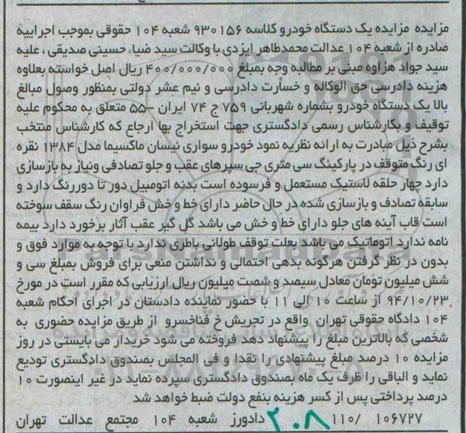 مزایده مزایده یک دستگاه خودرو کلاسه ۹۳۰۱۵۶ شعبه ۱۰۴ حقوقی بموجب اجراییه
صادره از شعبه ۱۰۴ عدالت محمدطاهر ایزدی با وکالت سید ضیاء حسینی صدیقی ، علیه
سید جواد هزاوه مبنی بر مطالبه وجه بمبلغ ۴۰۰/۰۰۰/۰۰۰ ریال اصل خواسته بعلاوه
هزینه دادرسی حق الوکاله و خسارت دادرسی و نیم عشر دولتی بمنظور وصول مبالغ
بالا یک دستگاه خودرو بشماره شهربانی ۷۵۹ ج ۷۴ ایران -۵۵ متعلق به محکوم علیه
توقیف و بکارشناس رسمی دادگستری جهت استخراج بها ارجاع که کارشناس منتخب
بشرح ذیل مبادرت به ارائه نظریه نمود خودرو سواری نیسان ماکسیما مدل ۱۳۸۴ نقره
ای رنگ متوقف در پارکینگ سی متری جی سپرهای عقب و جلو تصادفی ونیاز به بازسازی
دارد چهار حلقه لاستیک مستعمل و فرسوده است بدنه اتومبیل دور تا دوررنگ دارد و
سابقه تصادف و بازسازی شده در حال حاضر دارای خط و خش فراوان رنگ سقف سوخته
است قاب آینه های جلو دارای خط و خش می باشد گل گیر عقب آثار برخورد دارد بیمه
نامه ندارد اتوماتیک می باشد بعلت توقف طولانی باطری ندارد با توجه به موارد فوق و
بدون در نظر گرفتن هرگونه بدهی احتمالی و نداشتن منعی برای فروش بمبلغ سی و
شش میلیون تومان معادل سیصد و شصت میلیون ریال ارزیابی که مقرر است در مورخ
۹۴/۱۰/۲۳ از ساعت ۱۰ الی ۱۱ با حضور نماینده دادستان در اجرای احکام شعبه
۱۰۴ دادگاه حقوقی تهران واقع در تجریش خ فناخسرو از طریق مزایده حضوری به
شخصی که بالاترین مبلغ را پیشنهاد دهد فروخته می شود خریدار می بایستی در روز
مزایده ۱۰ درصد مبلغ پیشنهادی را نقدا و فی المجلس بصندوق دادگستری تودیع
نماید و الباقی را ظرف یک ماه بصندوق دادگستری سپرده نماید در غیر اینصورت ۱۰
درصد پرداختی پس از کسر هزینه بنفع دولت ضبط خواهد شد
۱۱۰/ ۱۰۶۷۲۷ ۲۰۸ دادورز شعبه ۱۰۴ مجتمع عدالت تهران